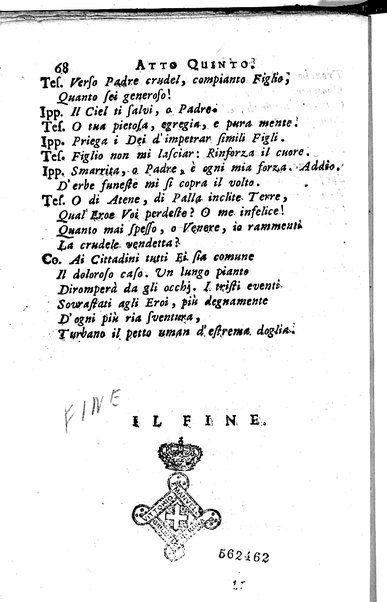 68 ATTO QUINTO.
Tes. Verso Padre crudel, compianto Figlio,
Quanto sei generoso!
Ipp. Il Ciel ti salvi, o Padre.
Tes. O tua pietosa, egregia, e pura mente!
Ipp. Priega i Dei d'impetrar simili Figli.
Tes. Figlio non mi lasciar: Rinforza il cuore.
Ipp. Smarrita, o Padre, è ogni mia forza. Addio.
D'erbe funeste mi si copra il volto.
Tes. O di Atene, di Palla inclite Terre,
Qual' Eroe Voi perdeste? O me infelice!
Quanto mai spesso, o Venere, io rammenti
La crudele vendetta?
Co. Ai Cittadini tutti Ei sia comune
Il doloroso caso. Un lungo pianto
Diromperà da gli occhj. I tristi eventi
Sovrastati agli Eroi, più degnamente
D'ogni più ria sventura,
Turbano il petto uman d'estrema doglia.
FINE
IL FINE.
VITTORIO
EMANUELE
562462